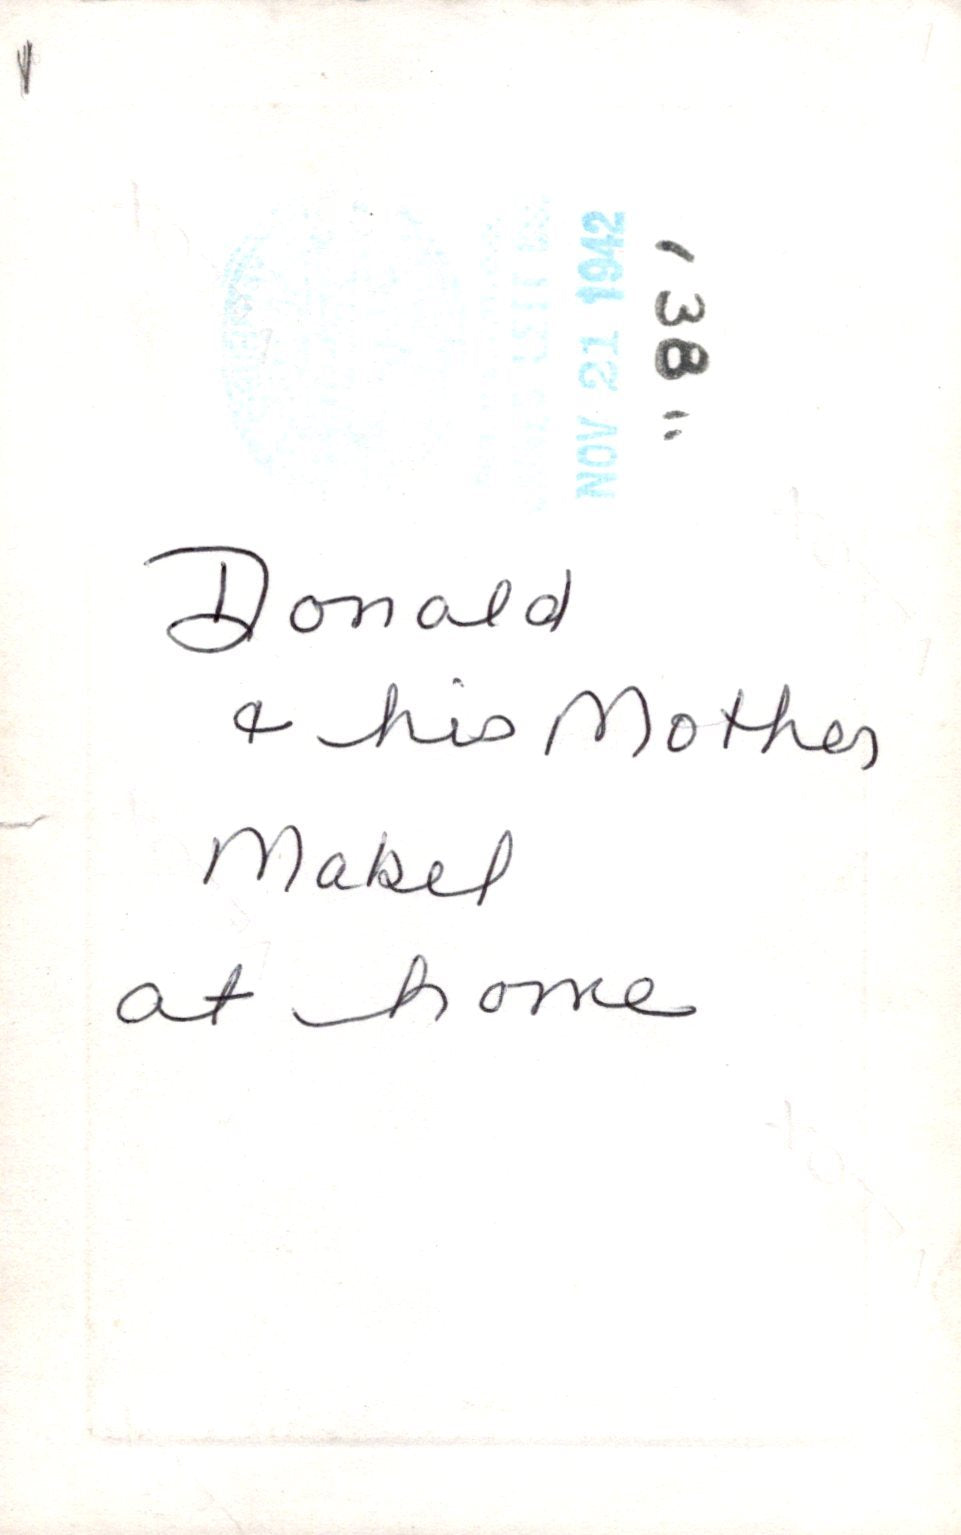 NOV 21 1942
'38"
Donald
& his Mother
Mabel
at home